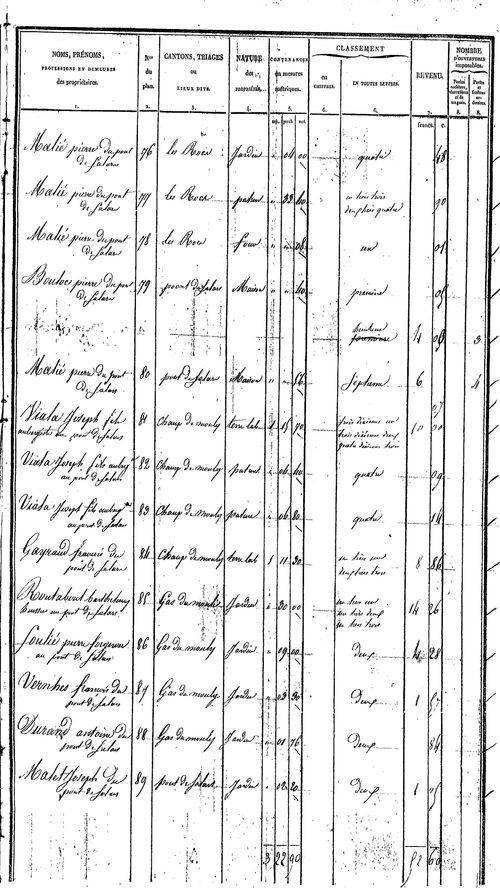 NOMS, PRÉNOMS, PROFESSIONS ET DEMEURES des propriétaires. Nos du plan. CANTONS, TRIAGES OU LIEUX DITS. NATURE des propriétés. CONTENANCES en mesures métriques. CLASSEMENT en CHIFFRES. EN TOUTES LETTRES. REVENU. NOMBRE D'OUVERTURES imposables.
1. 2. 3. 4. 5. 6. 6. 7. 8. 8.
francs. c.
Malié pierre du pont 76 les Roces Jardin 04 00 quatre 48
de Salars
Malié pierre du pont 77 les Roces pature 22 40 un tiers trois 90
de Salars deux tiers quatre
Malié pierre du pont 78 les Roces four 08 un 05
de Salars
Bouloc pierre du pont 79 pont de Salars Maison 40 première 05
de Salars
huitième
4 08 3
Malié pierre du pont 80 pont de Salars Maison 56 Septieme 6 4
de Salars
Viala Joseph fils 81 Champ de mouly terre lab 1 15 90 trois dixièmes un 10
aubergiste au pont de Salars trois dixièmes deux
quatre dixièmes trois
Viala Joseph fils auberg 82 Champ de mouly pature 04 40 quatre 09
au pont de Salars
Viala Joseph fils auberg 83 Champ de mouly pature 06 80 quatre 14
au pont de Salars
Gayraud françois du 84 Champ de mouly terre lab 1 11 30 un tiers un 8 86
pont de Salars deux tiers trois
85 Gas du mouly Jardin 30 00 un tiers un 14 26
au pont de Salars un tiers deux
un tiers trois
Soulié pierre forgeron 86 Gas du mouly Jardin 09 00 Deux 4 28
au pont de Salars
Vernhes françois du 87 Gas du mouly Jardin 03 30 Deux 1 57
pont de Salars
Durand antoine du 88 Gas du mouly Jardin 01 76 Deux 84
pont de Salars
Malet Joseph du 89 pont de Salars Jardin 02 20 Deux 1 05
pont de Salars
3 22 90 52 60